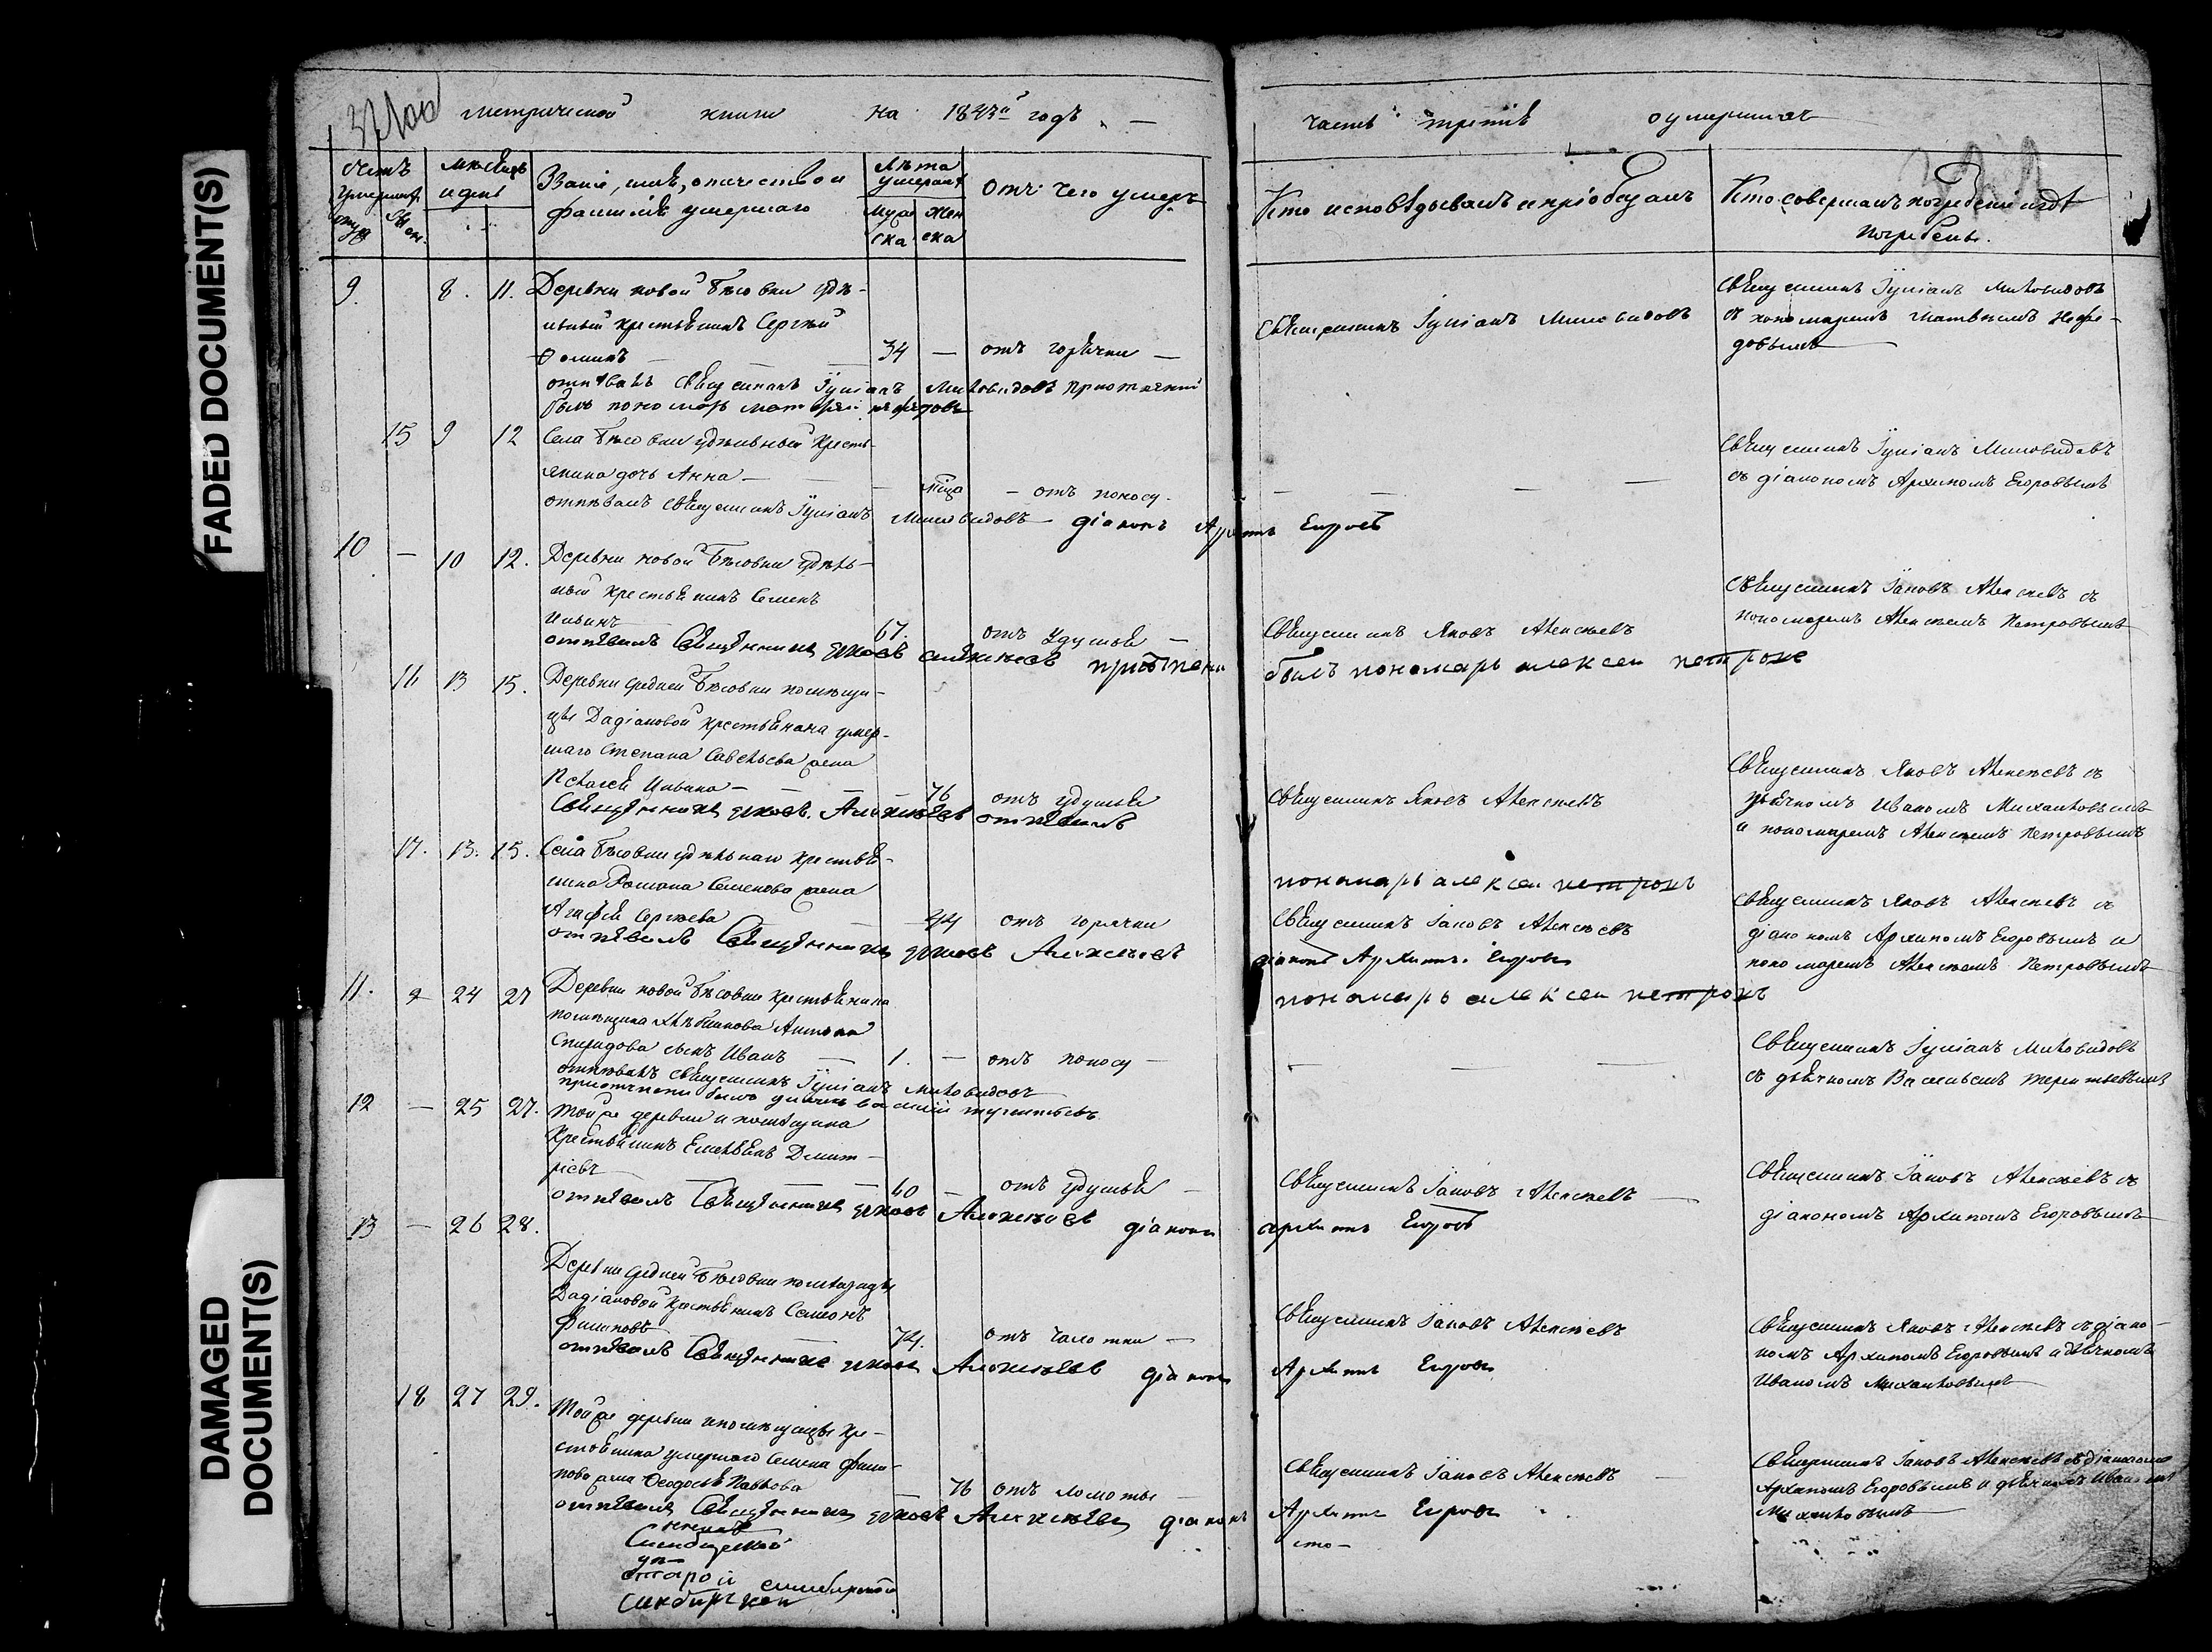 FADED DOCUMENT(S)
DAMAGED
DOCUMENT(S)
метрической книги на 1843й годъ
Счетъ умершихъ
мѣсяцъ и день
Званіе, имя, отчество и
фамилія умершаго
Лѣта
умершаго
муже
ска
жен
ска
отъ чего умеръ
9. 8. 11. Деревни новой Бѣсовки удѣ-
льный крестьянинъ Сергѣй
Ѳоминъ 34 — отъ горячки —
отпѣвалъ священникъ Іуліанъ Миловидовъ
былъ пономарь
15 9 12 Села Бѣсовки удѣльный кресть-
янина дочь Анна — отъ поносу.
отпѣвалъ священникъ Іуліанъ Миловидовъ діаконъ Архипъ Егоровъ
10 — 10 12. Деревни новой Бѣсовки удѣль-
ный крестьянинъ Семенъ
Ильинъ 67. отъ удушья —
отпѣвалъ Священникъ Яковъ Алексѣевъ былъ пономарь алексеи петровъ
16 13 15. Деревни средней Бѣсовки помѣщи-
цы Дадіановой крестьянина умер-
шаго Степана Савельева жена
Пелагея Ильина — 76 отъ удушья
Священникъ Яковъ Алексѣевъ отпѣвалъ
17. 13. 15. Села Бѣсовки удѣльнаго крестья-
нина Романа Семенова жена
Агафья Сергѣева 44 отъ горячки
отпѣвалъ Священникъ Яковъ Алексѣевъ
11. — 24 27 Деревни новой Бѣсовки крестьянина
помѣщика Антона
Спиридова сынъ Иванъ — 1. — отъ поносу —
отпѣвалъ священникъ Іуліанъ Миловидовъ
12 — 25 27. Той же деревни и помѣщика
крестьянинъ Емельянъ Дмит-
ріевъ 60 — отъ удушья —
отпѣвалъ Священникъ Яковъ Алексѣевъ діаконъ архипъ Егоровъ
13 — 26 28.
Деревни средней Бѣсовки помѣщицы
Дадіановой крестьянинъ Семенъ
Филиповъ 74. отъ чахотки —
отпѣвалъ Священникъ Яковъ Алексѣевъ діаконъ Архипъ Егоровъ
18 27 29. Той же деревни и помѣщицы кре-
стьянина умершаго Семена Фили-
пова жена Ѳеодосья Павлова 76 отъ ломоты
отпѣвалъ Священникъ Яковъ Алексѣевъ діаконъ Архипъ Егоровъ
старой симбирской
часть третія о умершихъ
Кто исповѣдывалъ и пріобщалъ
Кто совершалъ погребеніе и гдѣ
погребены.
Священникъ Іуліанъ Миловидовъ
Священникъ Іуліанъ Миловидовъ
съ пономаремъ Матвѣемъ Нефе-
довымъ
Священникъ Іуліанъ Миловидовъ
съ діакономъ Архипомъ Егоровымъ
Священникъ Яковъ Алексѣевъ
Священникъ Іаковъ Алексѣевъ съ
пономаремъ Алексѣемъ Петровымъ
Священникъ Яковъ Алексѣевъ
Священникъ Яковъ Алексѣевъ съ
дьячкомъ Иваномъ Михайловымъ
и пономаремъ Алексѣемъ Петровымъ
пономарь алексеи петровъ
Священникъ Іаковъ Алексѣевъ
діаконъ Архипъ Егоровъ
пономарь алексеи петровъ
Священникъ Яковъ Алексѣевъ съ
діакономъ Архипомъ Егоровымъ и
пономаремъ Алексѣемъ Петровымъ
Священникъ Іуліанъ Миловидовъ
съ дьячкомъ Васильемъ Терентьевымъ
Священникъ Іаковъ Алексѣевъ
Священникъ Іаковъ Алексѣевъ съ
діакономъ Архипомъ Егоровымъ
Священникъ Іаковъ Алексѣевъ
Священникъ Яковъ Алексѣевъ съ діако-
номъ Архипомъ Егоровымъ и дьячкомъ
Иваномъ Михайловымъ
Священникъ Іаковъ Алексѣевъ
Священникъ Іаковъ Алексѣевъ съ діакономъ
Архипомъ Егоровымъ и дьячкомъ Иваномъ
Михайловымъ